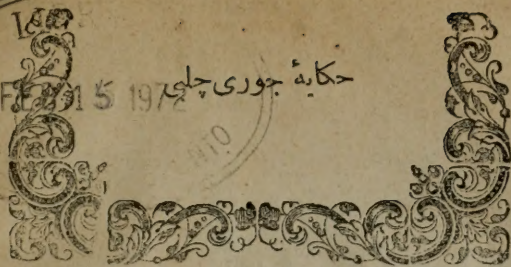 حكایهٔ جوری چلبی
FEB 15 1972